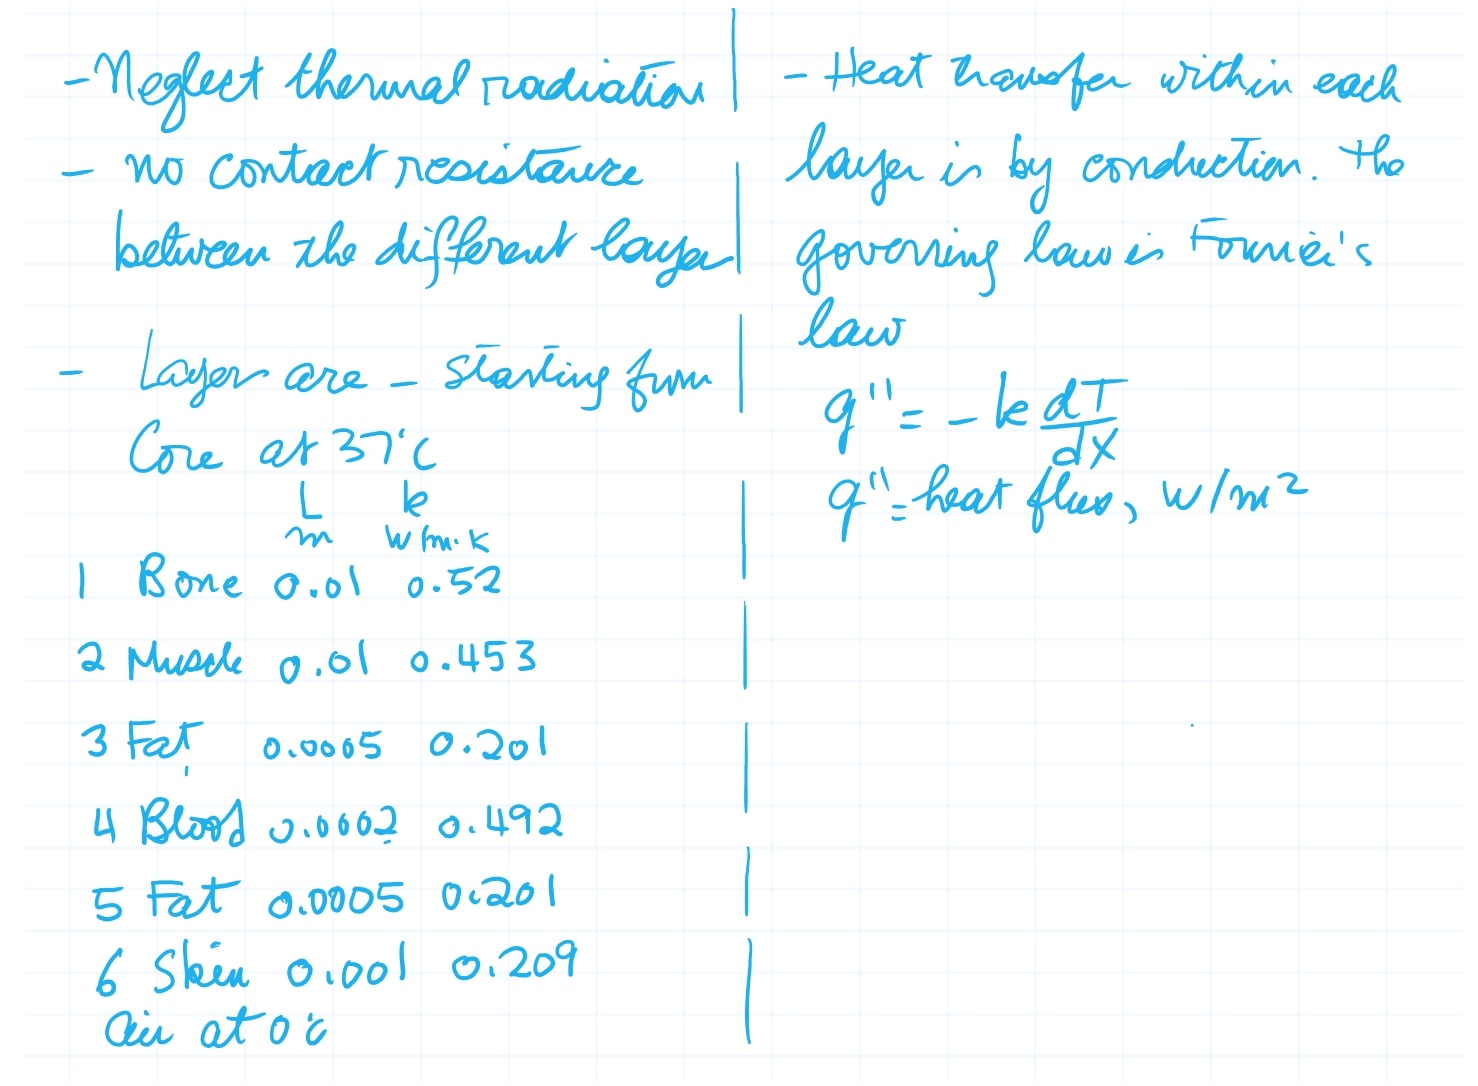 - Neglect thermal radiation
- no contact resistance
between the different layer
- Layer are - starting from
Core at 37°C
L k
m W/m.K
1 Bone 0.01 0.52
2 Muscle 0.01 0.453
3 Fat 0.0005 0.201
4 Blood 0.0002 0.492
5 Fat 0.0005 0.201
6 Skin 0.001 0.209
air at 0°C
- Heat transfer within each
layer is by conduction. The
governing law is Fourier's
law
q" = -k dT/dX
q" = heat flux, W/m²